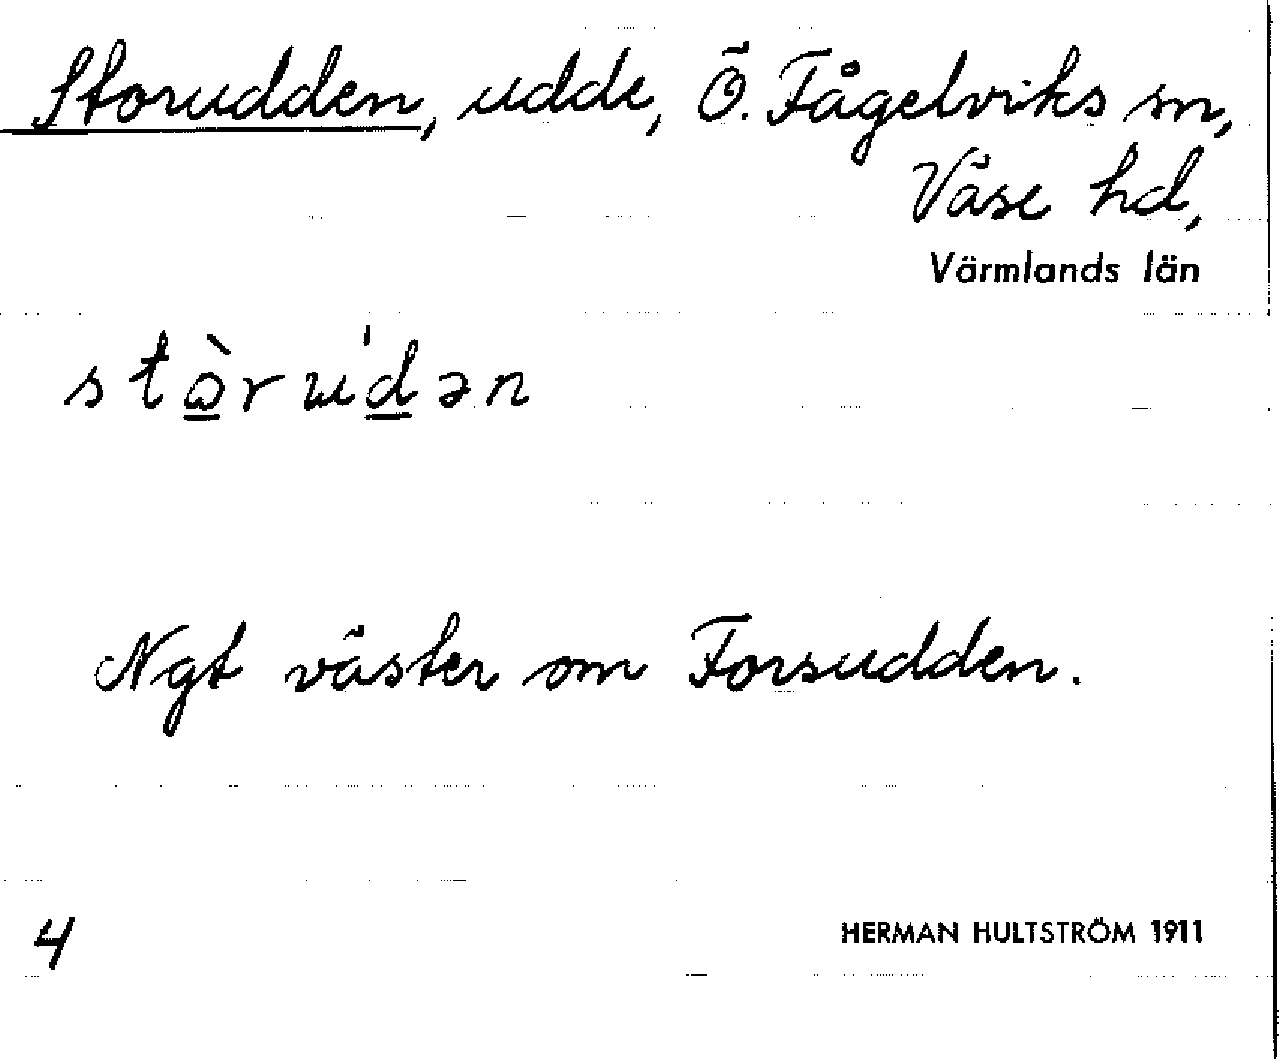 Storudden, udde, Ö. Fågelviks sn,
Väse hd,
Värmlands län
stɷ̀rud́ən
Ngt väster om Forsudden.
4
HERMAN HULTSTRÖM 1911